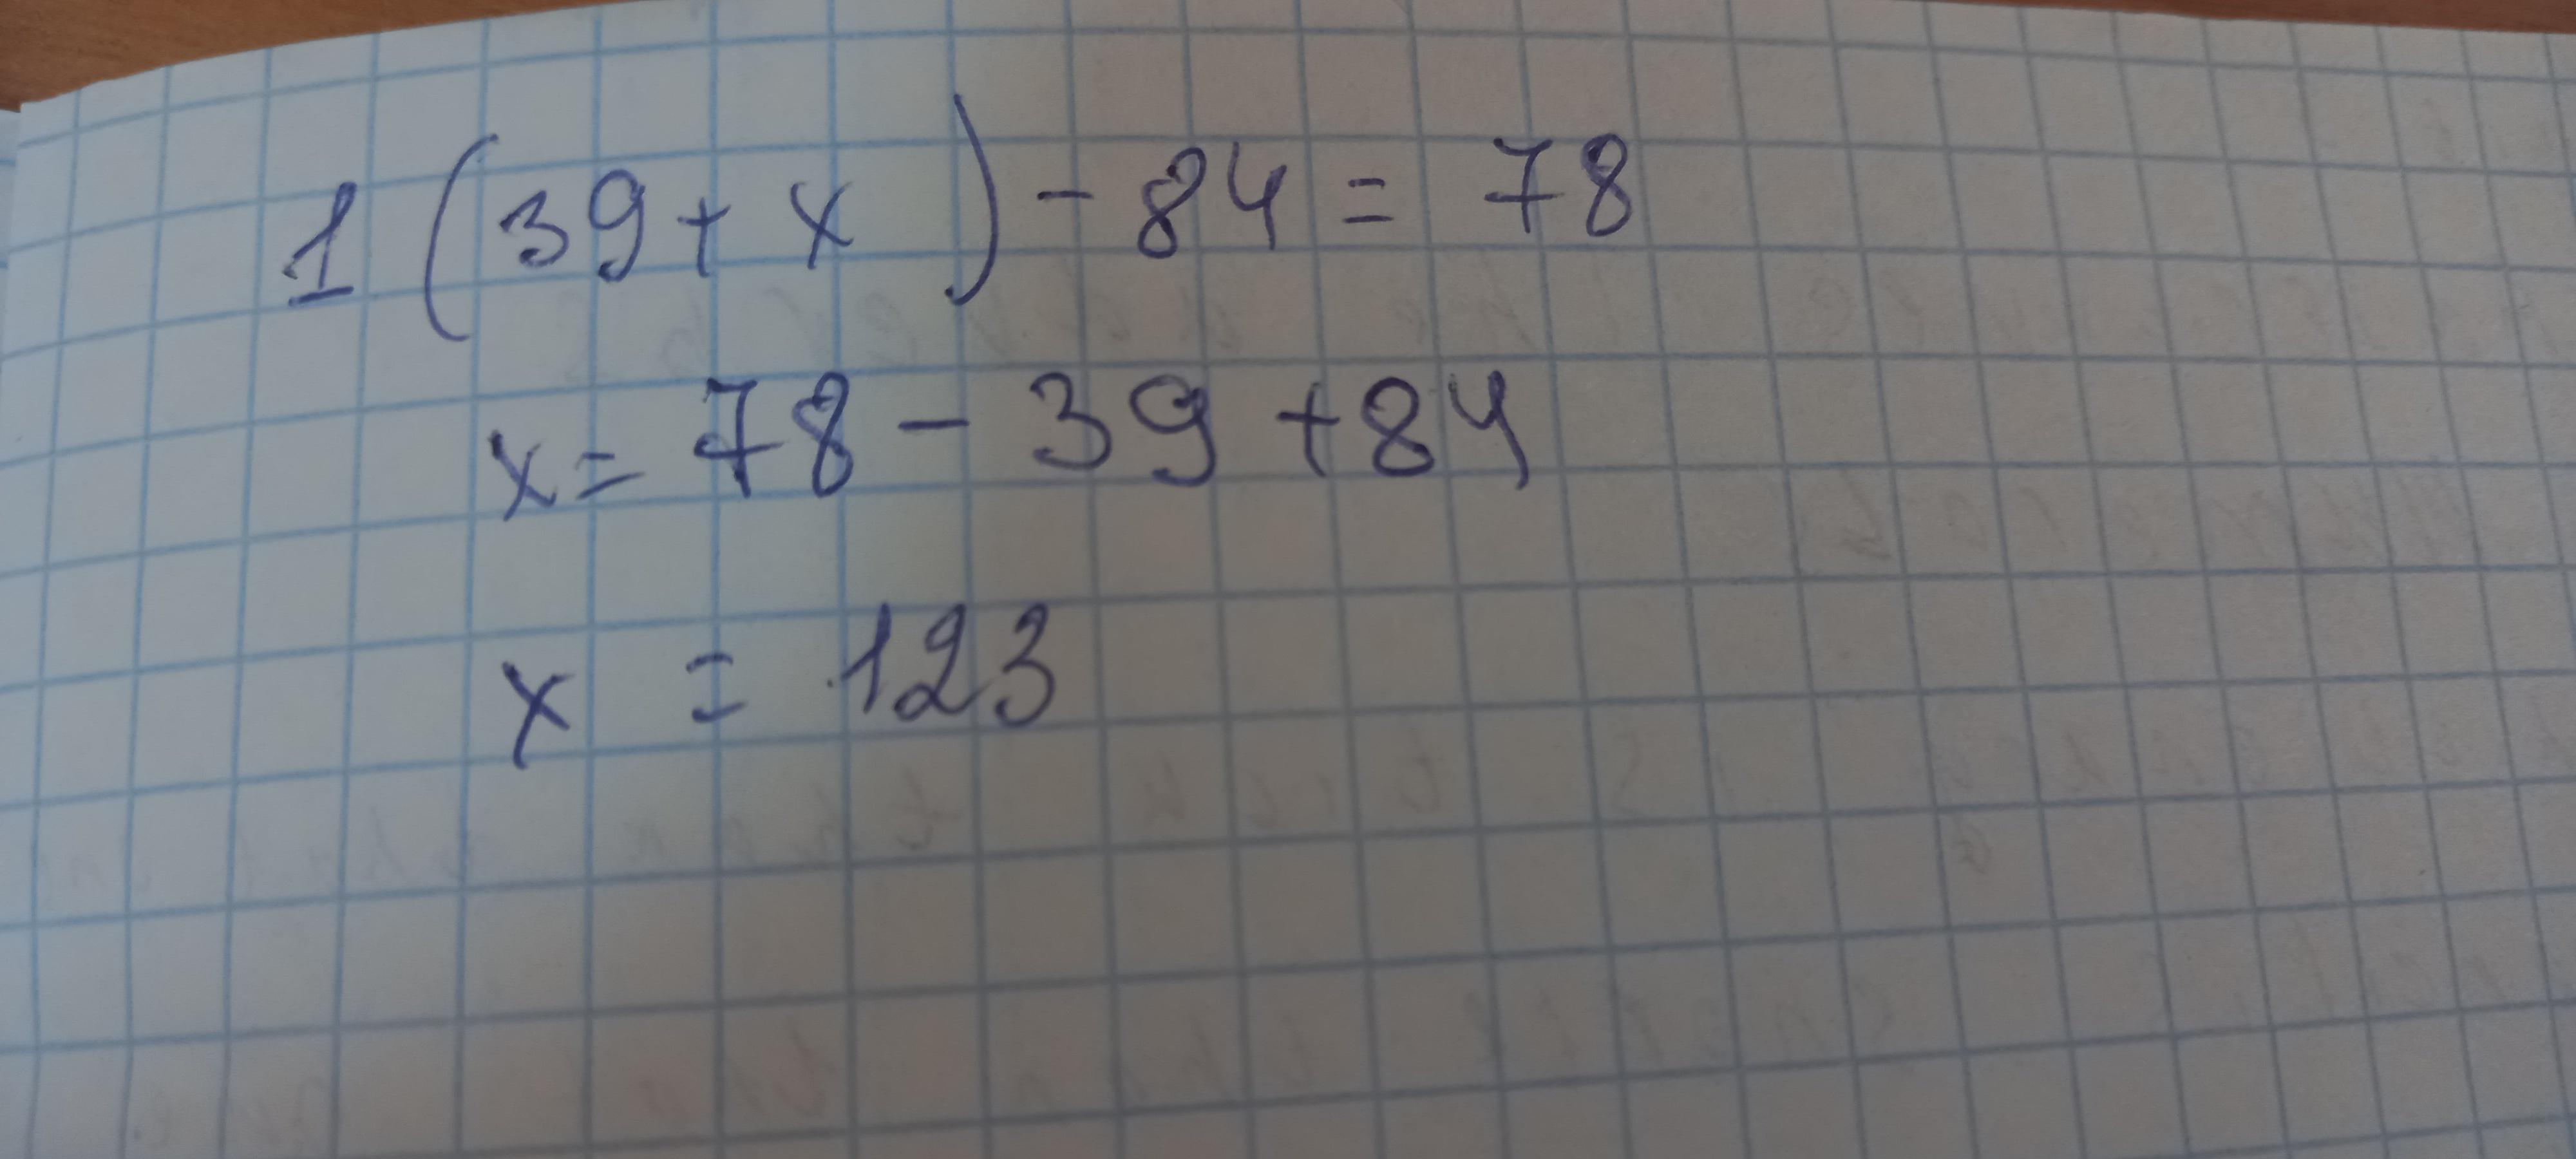 1 (39 + x) - 84 = 78
x = 78 - 39 + 84
x = 123